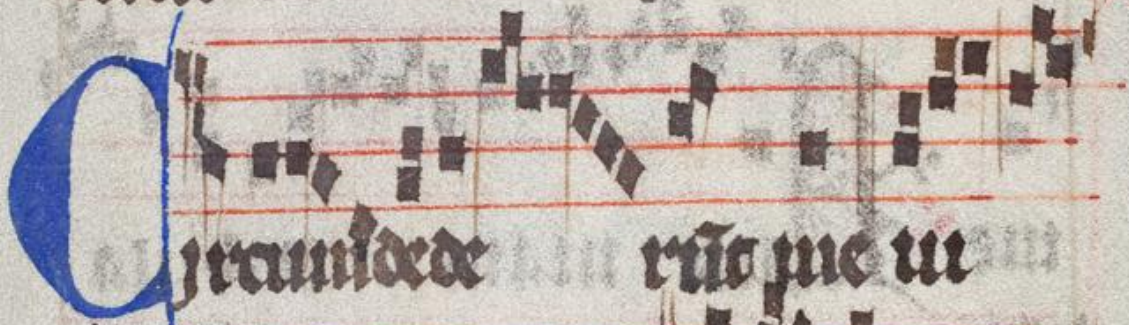 Circumdede rūt me ui